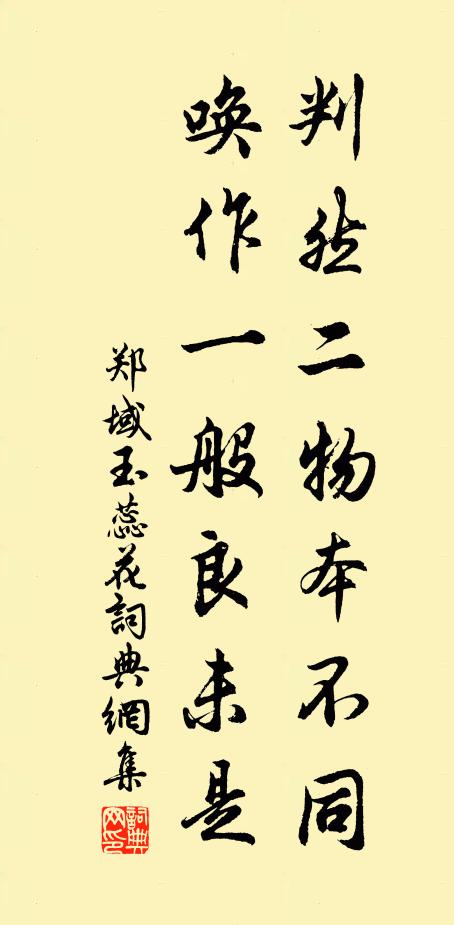 判然二物本不同
唤作一般良未是
郑域玉蕊花詞典網集
詞典網印